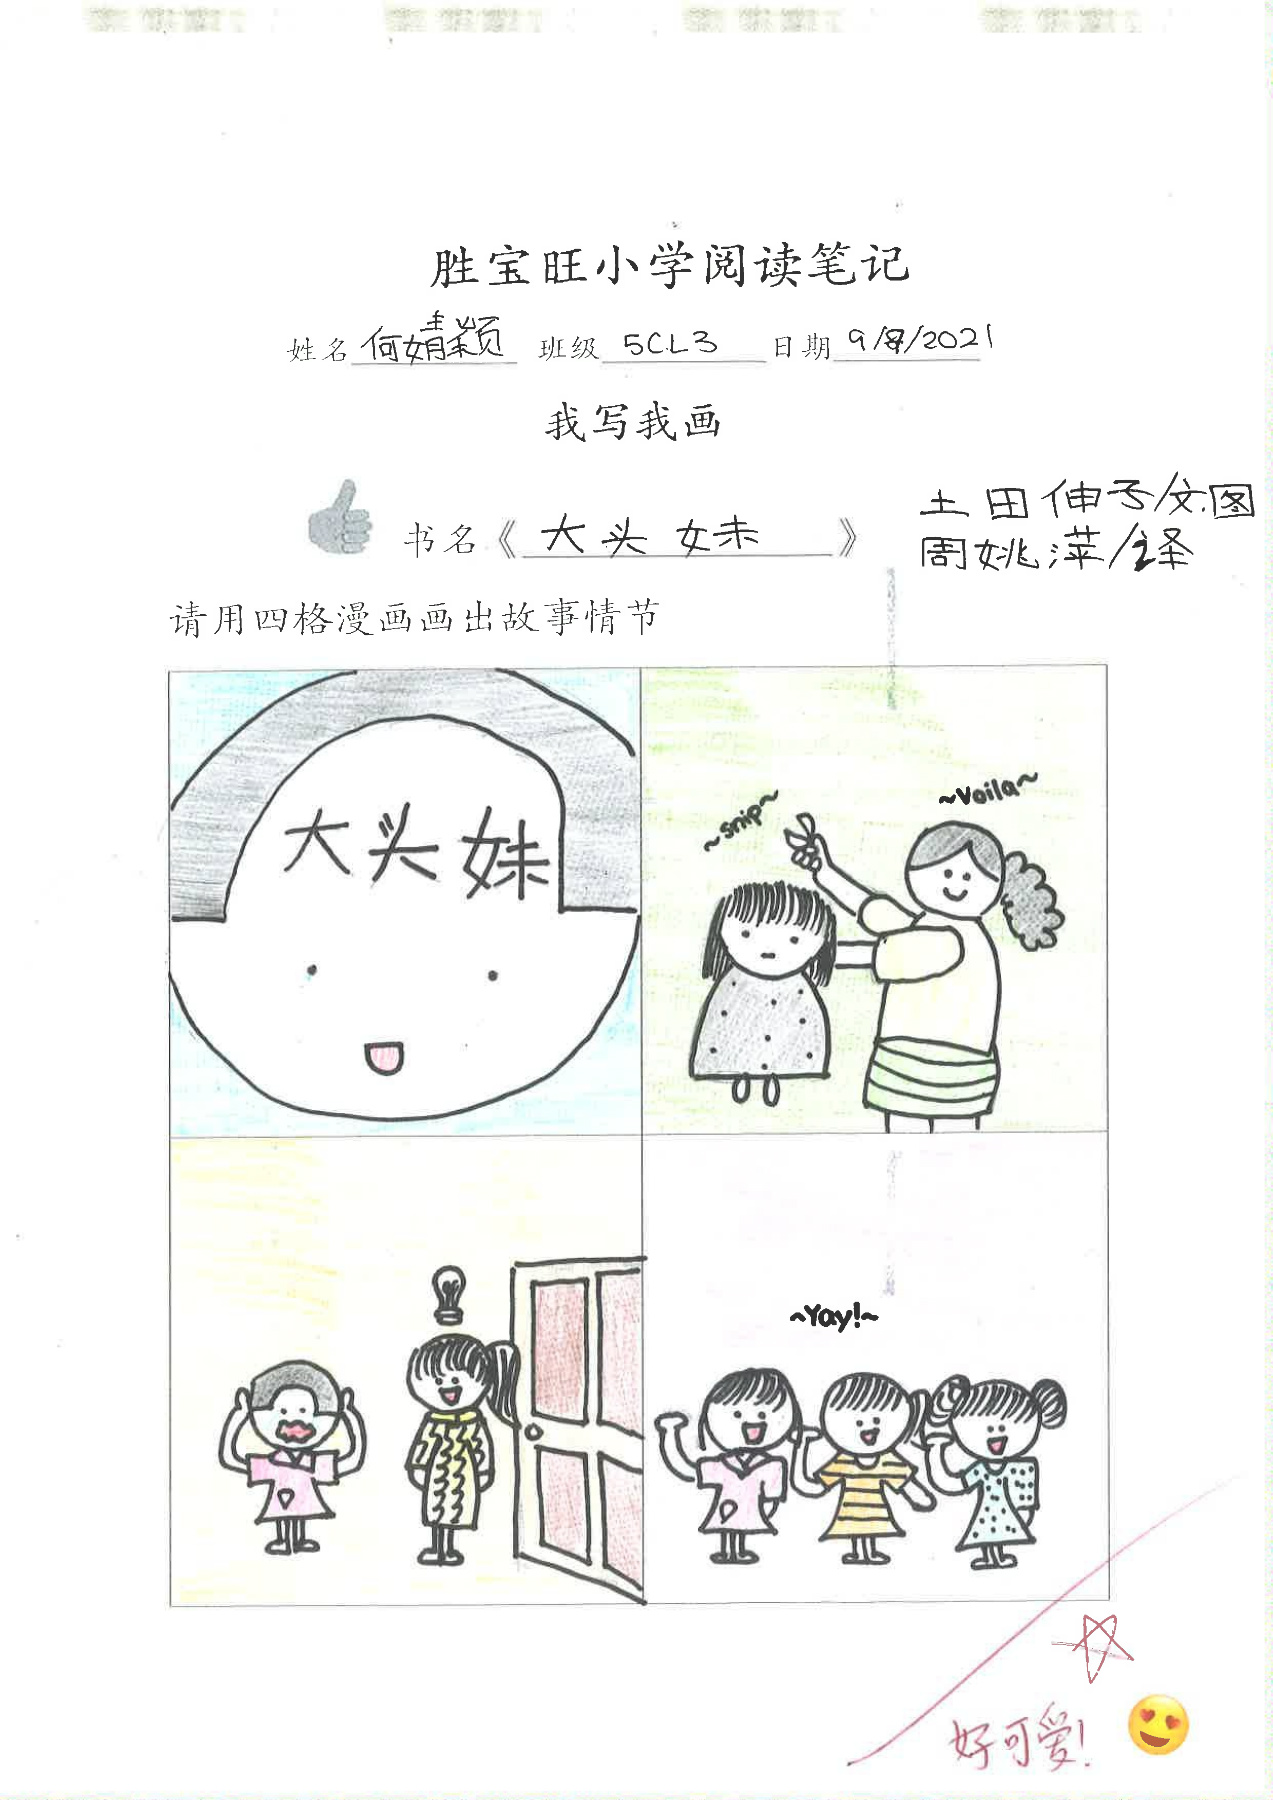 胜宝旺小学阅读笔记
姓名 何婧颖 班级 5CL3 日期 9/8/2021
我写我画
书名《 大头妹 》
土田伸子/文.图
周姚萍/译
请用四格漫画画出故事情节
大头妹
~snip~
~Voila~
~Yay!~
好可爱!